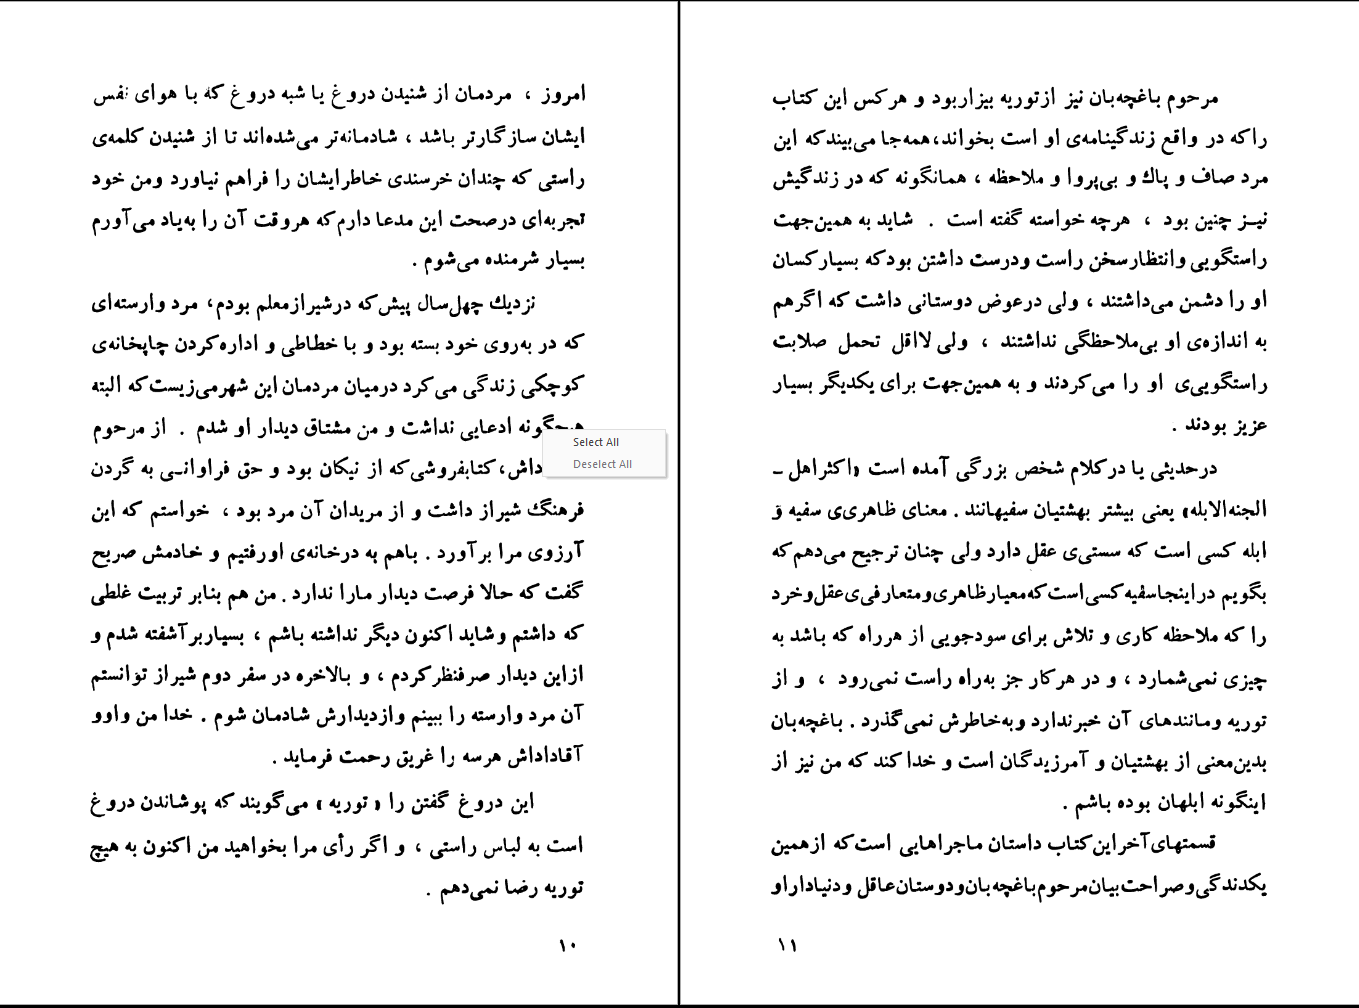 امروز ، مردمان از شنیدن دروغ یا شبه دروغ که با هوای نفس
ایشان سازگارتر باشد ، شادمانه‌تر می‌شده‌اند تا از شنیدن کلمه‌ی
راستی که چندان خرسندی خاطرایشان را فراهم نیاورد ومن خود
تجربه‌ای درصحت این مدعا دارم‌که هروقت آن را به‌یاد می‌آورم
بسیار شرمنده می‌شوم .
نزدیك چهل‌سال پیش‌که درشیرازمعلم بودم، مرد وارسته‌ای
که در به‌روی خود بسته بود و با خطاطی و اداره‌کردن چاپخانه‌ی
کوچکی زندگی می‌کرد درمیان مردمان این شهرمی‌زیست‌که البته
هیچگونه ادعایی نداشت و من مشتاق دیدار او شدم . از مرحوم
داش،کتابفروشی‌که از نیکان بود و حق فراوانـی به گردن
فرهنگ شیراز داشت و از مریدان آن مرد بود ، خواستم که این
آرزوی مرا برآورد . باهم به درخانه‌ی اورفتیم و خادمش صریح
گفت که حالا فرصت دیدار مارا ندارد . من هم بنابر تربیت غلطی
که داشتم وشاید اکنون دیگر نداشته باشم ، بسیاربرآشفته شدم و
ازاین دیدار صرفنظرکردم ، و بالاخره در سفر دوم شیراز توانستم
آن مرد وارسته را ببینم وازدیدارش شادمان شوم . خدا من واوو
آقاداداش هرسه را غریق رحمت فرماید .
این دروغ گفتن را « توریه » می‌گویند که پوشاندن دروغ
است به لباس راستی ، و اگر رأی مرا بخواهید من اکنون به هیچ
توریه رضا نمی‌دهم .
۱۰
Select All
Deselect All
مرحوم باغچه‌بان نیز ازتوریه بیزاربود و هرکس این کتاب
راکه در واقع زندگینامه‌ی او است بخواند،همه‌جا می‌بیندکه این
مرد صاف و پاك و بی‌پروا و ملاحظه ، همانگونه که در زندگیش
نیـز چنین بود ، هرچه خواسته گفته است . شاید به همین‌جهت
راستگویی وانتظارسخن راست ودرست داشتن بودکه بسیارکسان
او را دشمن می‌داشتند ، ولی درعوض دوستانی داشت که اگرهم
به اندازه‌ی او بی‌ملاحظگی نداشتند ، ولی لااقل تحمل صلابت
راستگویی‌ی او را می‌کردند و به همین‌جهت برای یکدیگر بسیار
عزیز بودند .
درحدیثی یا درکلام شخص بزرگی آمده است «اکثراهل ـ
الجنه‌الابله» یعنی بیشتر بهشتیان سفیهانند . معنای ظاهری‌ی سفیه و
ابله کسی است که سستی‌ی عقل دارد ولی چنان ترجیح می‌دهم‌که
بگویم دراینجاسفیه‌کسی‌است‌که‌معیارظاهری‌ومتعارفی‌ی‌عقل‌وخرد
را که ملاحظه کاری و تلاش برای سودجویی از هرراه که باشد به
چیزی نمی‌شمارد ، و در هرکار جز به‌راه راست نمی‌رود ، و از
توریه ومانندهای آن خبرندارد وبه‌خاطرش نمی‌گذرد . باغچه‌بان
بدین‌معنی از بهشتیان و آمرزیدگان است و خدا کند که من نیز از
اینگونه ابلهان بوده باشم .
قسمتهای‌آخراین‌کتاب داستان ماجراهایی است‌که ازهمین
یکدندگی‌وصراحت‌بیان‌مرحوم‌باغچه‌بان‌ودوستان‌عاقل ودنیاداراو
۱۱